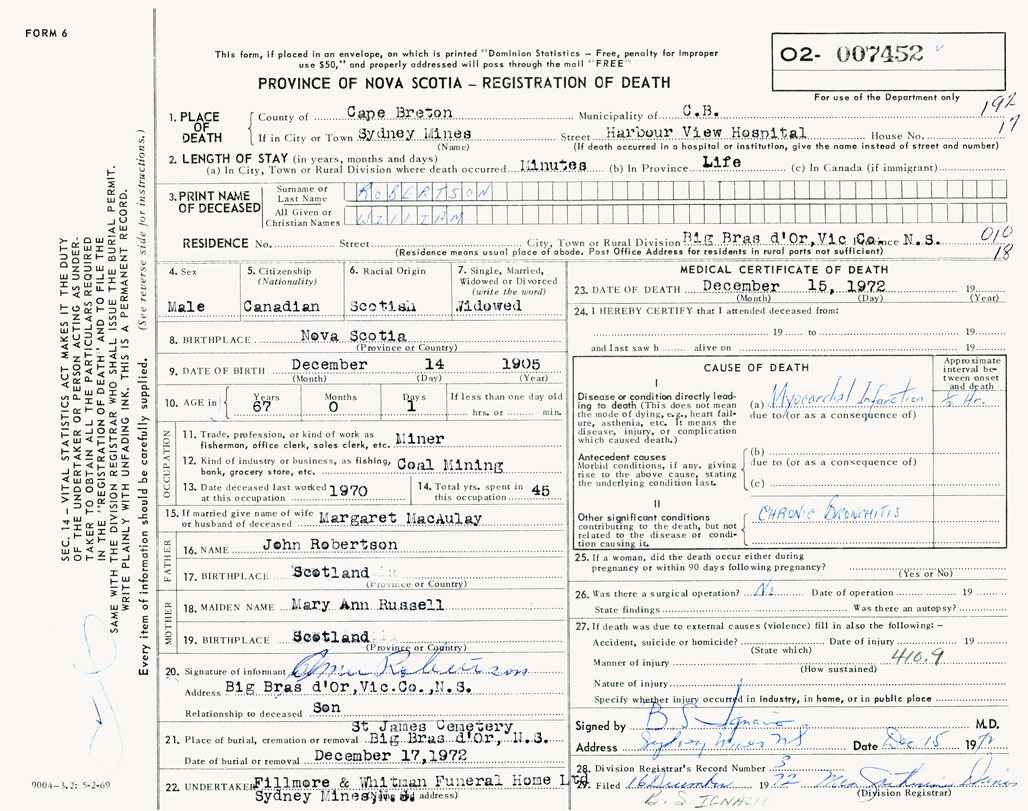 FORM 6
This form, if placed in an envelope, on which is printed "Dominion Statistics – Free, penalty for improper
use $50," and properly addressed will pass through the mail "FREE"
PROVINCE OF NOVA SCOTIA – REGISTRATION OF DEATH
O2- 007452
For use of the Department only
192
17
1. PLACE OF DEATH
County of Cape Breton Municipality of C.B.
If in City or Town Sydney Mines Street Harbour View Hospital House No.
(Name) (If death occurred in a hospital or institution, give the name instead of street and number)
2. LENGTH OF STAY (in years, months and days)
(a) In City, Town or Rural Division where death occurred Minutes (b) In Province Life (c) In Canada (if immigrant)
3. PRINT NAME OF DECEASED
Surname or Last Name ROBERTSON
All Given or Christian Names WILLIAM
RESIDENCE No. Street City, Town or Rural Division Big Bras d'Or, Vic Co. Province N.S. 010
(Residence means usual place of abode. Post Office Address for residents in rural parts not sufficient) 18
4. Sex
Male
5. Citizenship
(Nationality)
Canadian
6. Racial Origin
Scotish
7. Single, Married,
Widowed or Divorced
(write the word)
Widowed
8. BIRTHPLACE Nova Scotia
(Province or Country)
9. DATE OF BIRTH December 14 1905
(Month) (Day) (Year)
10. AGE in Years Months Days If less than one day old
67 0 1 hrs. or min.
OCCUPATION
11. Trade, profession, or kind of work as
fisherman, office clerk, sales clerk, etc. Miner
12. Kind of industry or business, as fishing,
bank, grocery store, etc. Coal Mining
13. Date deceased last worked
at this occupation 1970
14. Total yrs. spent in
this occupation 45
15. If married give name of wife
or husband of deceased Margaret MacAulay
FATHER
16. NAME John Robertson
17. BIRTHPLACE Scotland
(Province or Country)
MOTHER
18. MAIDEN NAME Mary Ann Russell
19. BIRTHPLACE Scotland
(Province or Country)
20. Signature of informant Robertson
Address Big Bras d'Or, Vic. Co., N.S.
Relationship to deceased Son
St James Cemetery
21. Place of burial, cremation or removal Big Bras d'Or, N.S.
Date of burial or removal December 17, 1972
22. UNDERTAKER Fillmore & Whitman Funeral Home Ltd
Sydney Mines, address)
MEDICAL CERTIFICATE OF DEATH
23. DATE OF DEATH December 15, 1972 19
(Month) (Day) (Year)
24. I HEREBY CERTIFY that I attended deceased from:
19 to 19
and last saw h alive on 19
CAUSE OF DEATH
Approximate
interval be-
tween onset
and death
I
Disease or condition directly lead-
ing to death (This does not mean
the mode of dying, e.g., heart fail-
ure, asthenia, etc. It means the
disease, injury, or complication
which caused death.)
(a) Myocardial Infarction ½ Hr.
due to (or as a consequence of)
Antecedent causes
Morbid conditions, if any, giving
rise to the above cause, stating
the underlying condition last.
(b)
due to (or as a consequence of)
(c)
II
Other significant conditions
contributing to the death, but not
related to the disease or condi-
tion causing it.
CHRONIC BRONCHITIS
25. If a woman, did the death occur either during
pregnancy or within 90 days following pregnancy?
(Yes or No)
26. Was there a surgical operation? No Date of operation 19
State findings Was there an autopsy?
27. If death was due to external causes (violence) fill in also the following: –
Accident, suicide or homicide? Date of injury 19
(State which)
Manner of injury 410.9
(How sustained)
Nature of injury
Specify whether injury occurred in industry, in home, or in public place
Signed by B. S. Ignacio M.D.
Address Sydney Mines NS Date Dec 15 1972
28. Division Registrar's Record Number 3
29. Filed 16 December 1972
(Division Registrar)
B. S. IGNACIO
SEC. 14 – VITAL STATISTICS ACT MAKES IT THE DUTY
OF THE UNDERTAKER OR PERSON ACTING AS UNDER-
TAKER TO OBTAIN ALL THE PARTICULARS REQUIRED
IN THE "REGISTRATION OF DEATH" AND TO FILE THE
SAME WITH THE DIVISION REGISTRAR WHO SHALL ISSUE THE BURIAL PERMIT.
WRITE PLAINLY WITH UNFADING INK. THIS IS A PERMANENT RECORD.
Every item of information should be carefully supplied. (See reverse side for instructions.)
9004–3.2: 5-2-69